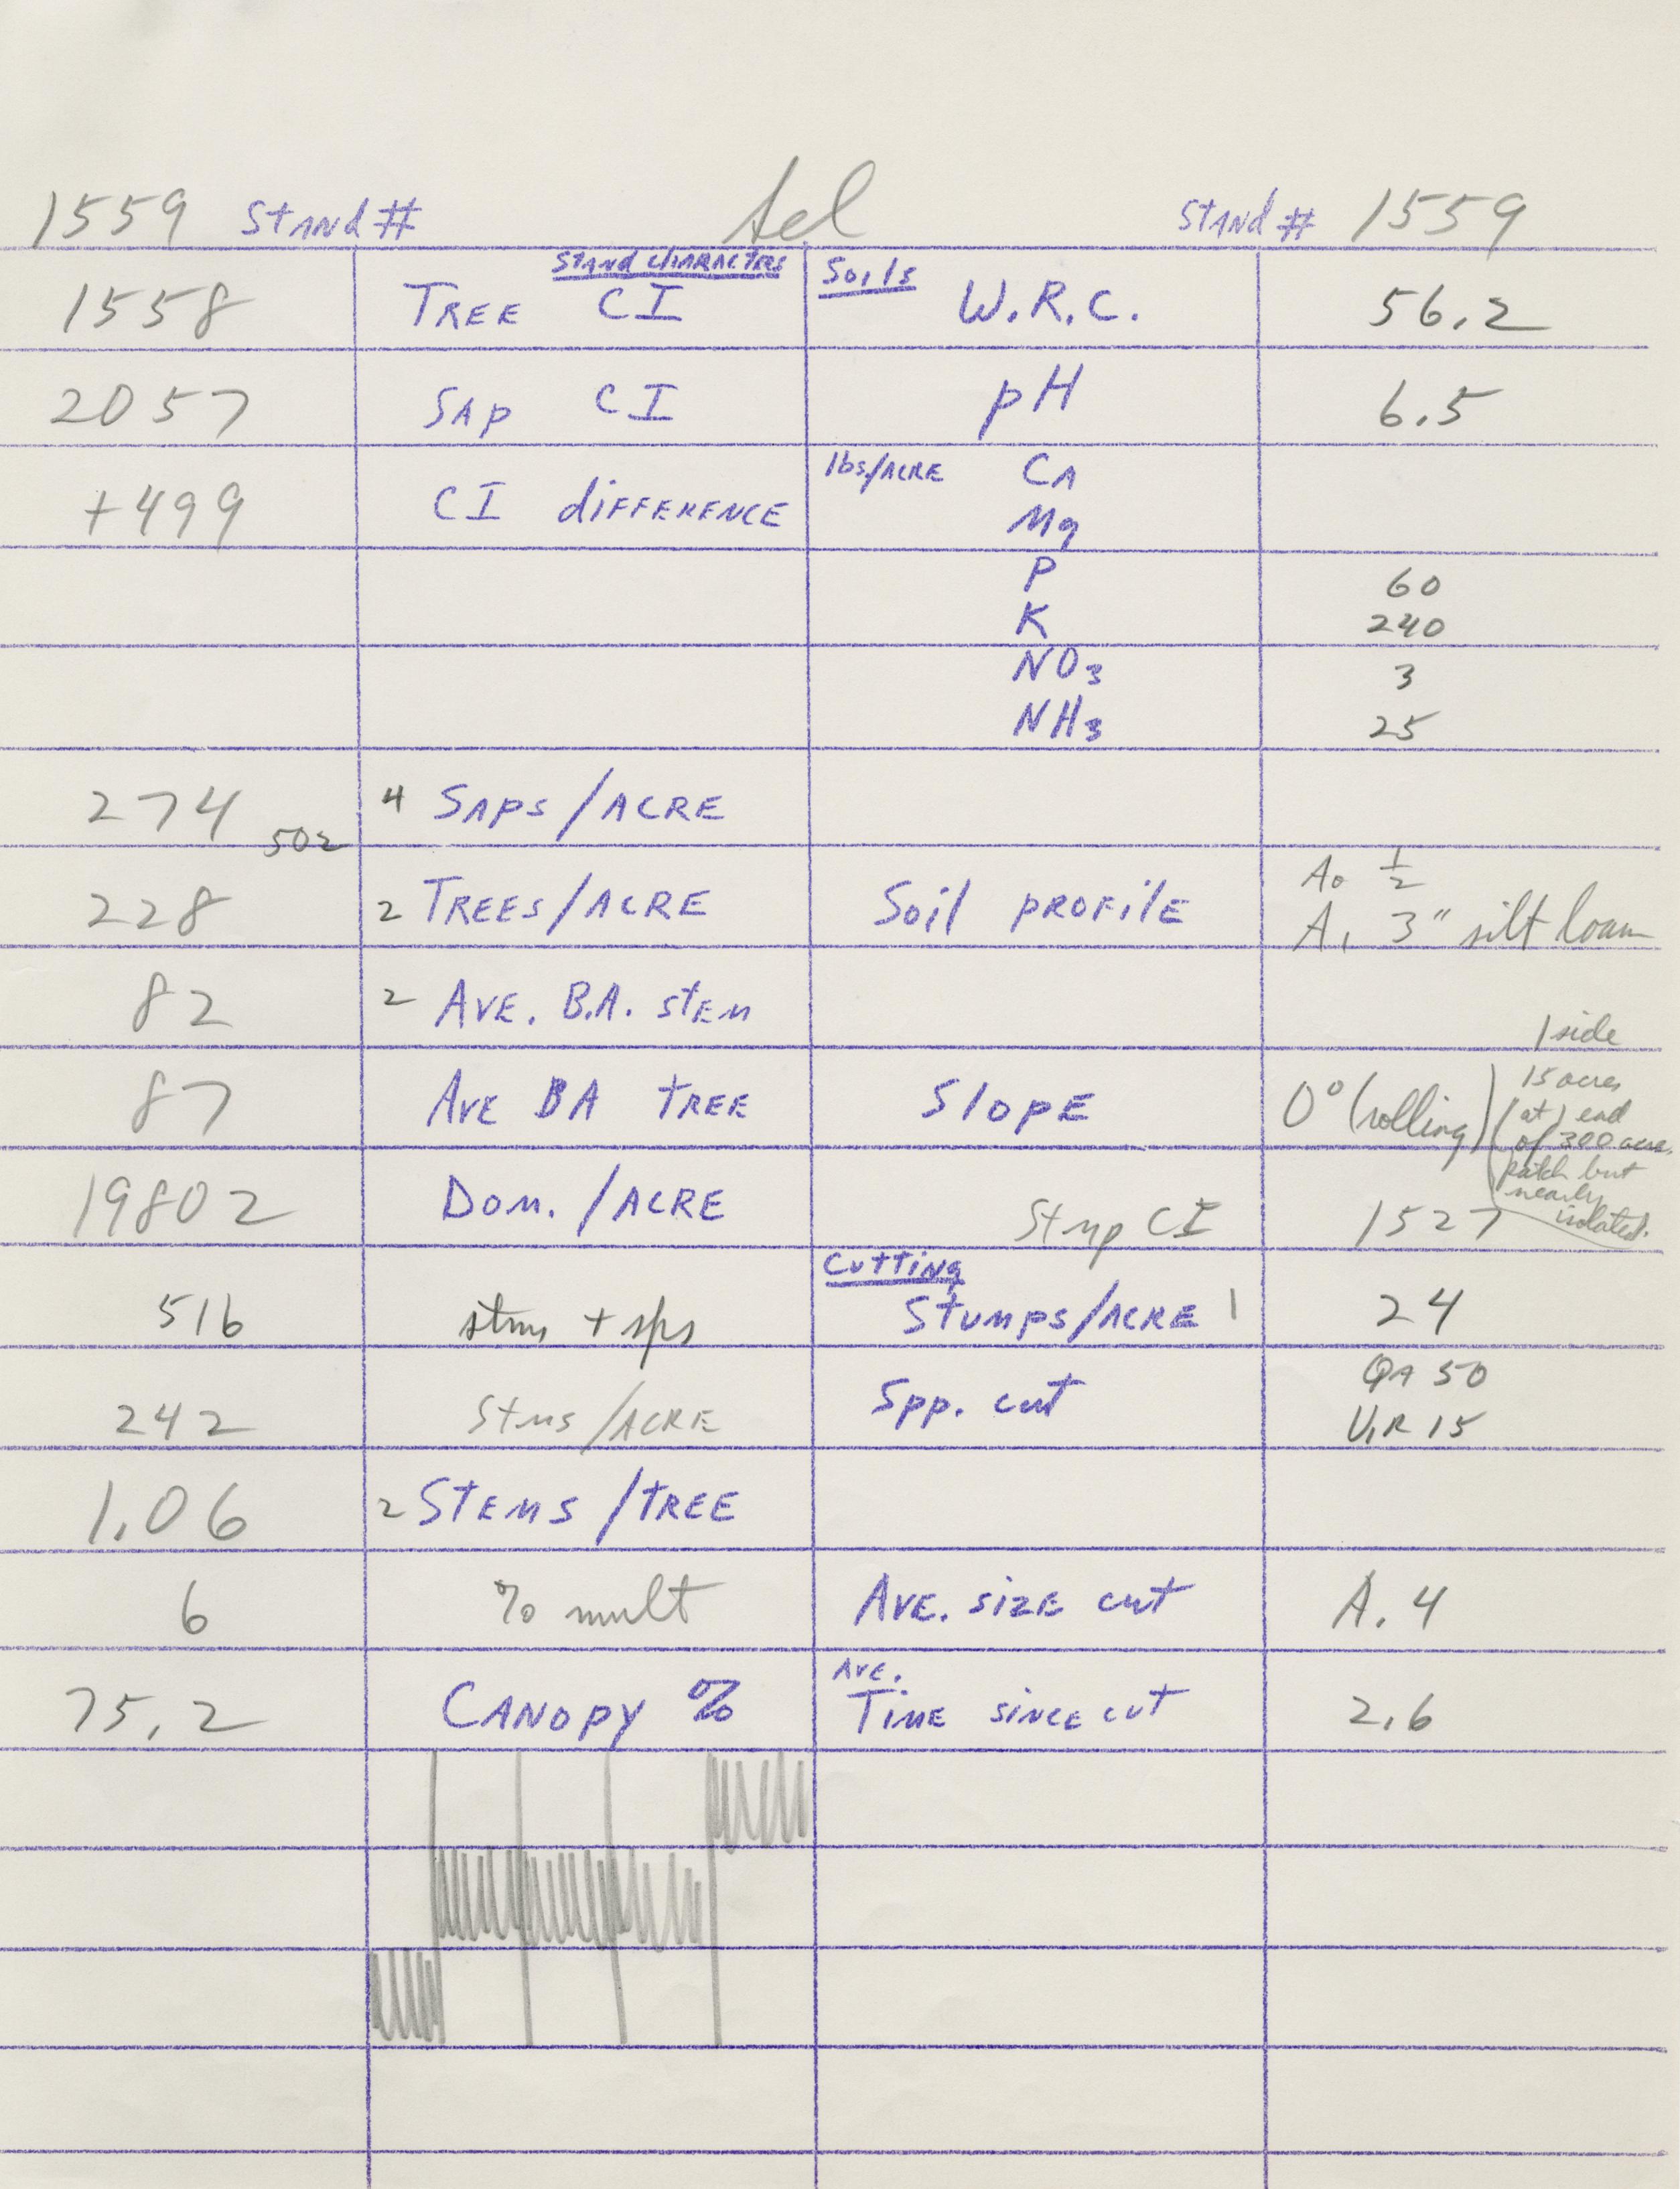 1559 Stand # Sel Stand # 1559
Stand characters Soils
1558 Tree CI W.R.C. 56.2
2057 Sap CI pH 6.5
+499 CI difference lbs/acre Ca
Mg
P 60
K 240
NO3 3
NH3 25
274 4 Saps/acre
502
A0 1/2
228 2 Trees/acre Soil profile A1 3" silt loam
82 2 Ave. B.A. stem
1 side
87 Ave BA tree Slope 0° (rolling)
15 acres
(at) end
of 300 acre
patch but
nearly
isolated.
19802 Dom. /acre Stmp CI 1527
Cutting
516 stms + sps Stumps/acre 1 24
242 Stms/acre Spp. cut QA 50
U.R 15
1.06 2 Stems/tree
6 % mult Ave. size cut A. 4
Ave.
75.2 Canopy % Time since cut 2.6